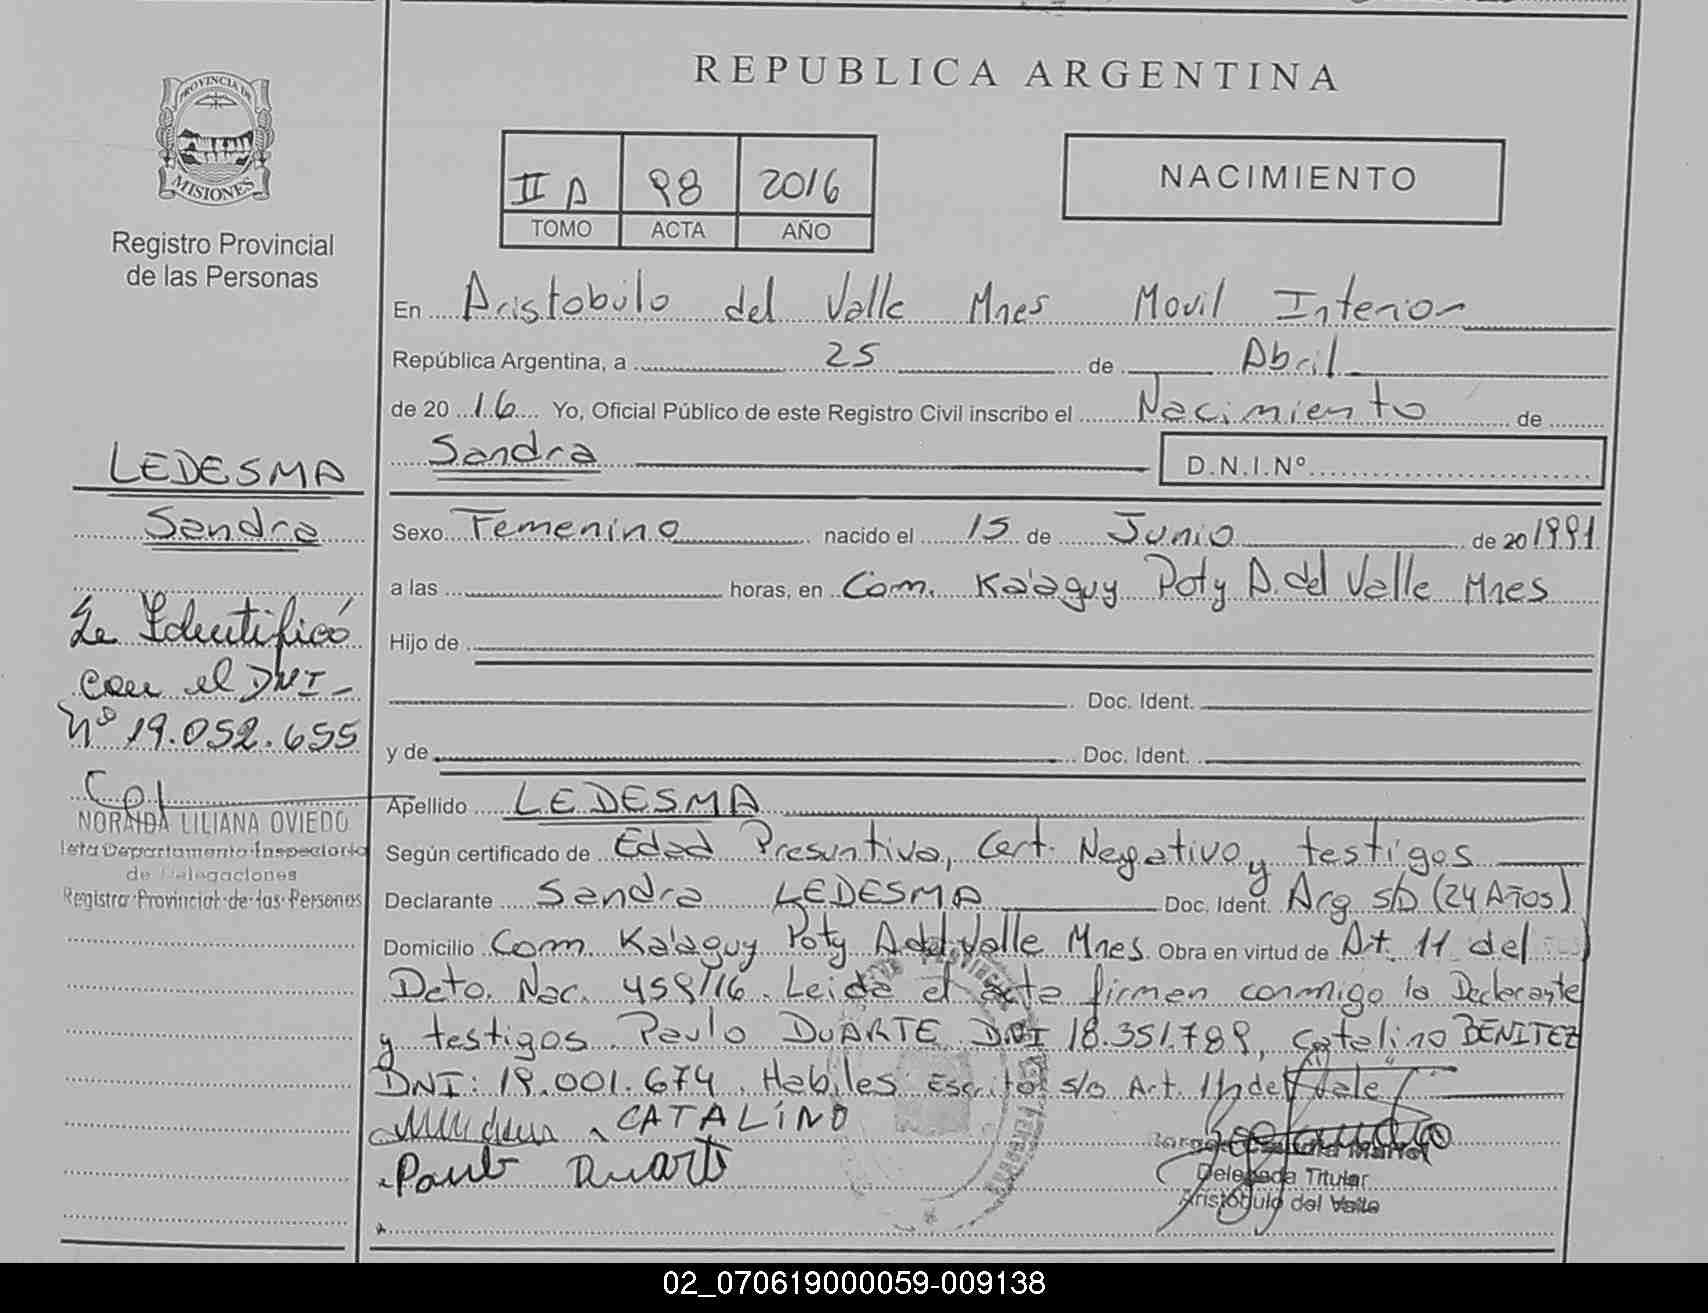 REPUBLICA ARGENTINA
PROVINCIA DE
MISIONES
Registro Provincial
de las Personas
II A 98 2016
TOMO ACTA AÑO
NACIMIENTO
En Aristobulo del Valle Mnes Movil Interior
República Argentina, a 25 de Abril
de 2016 Yo, Oficial Público de este Registro Civil inscribo el Nacimiento de
Sandra D.N.I.Nº
Sexo Femenino nacido el 15 de Junio de 20 1991
a las horas, en Com. Ka'aguy Poty A. del Valle Mnes
Hijo de
Doc. Ident.
y de Doc. Ident.
Apellido LEDESMA
Según certificado de Edad Presuntiva, Cert. Negativo y testigos
Declarante Sandra LEDESMA Doc. Ident. Arg s/D (24 Años)
Domicilio Com. Ka'aguy Poty A del Valle Mnes. Obra en virtud de Art. 11 del
Dcto. Nac. 459/16. Leida el acta firman conmigo la Declarante
y testigos Paulo DUARTE DNI 18.351.789, Catalino BENITEZ
DNI: 19.001.674. Habiles Escrito s/o Art. 11 del Vale
CATALINO
Paulo Duarte
Delegada Titular
Aristóbulo del Valle
LEDESMA
Sandra
Se Identificó
con el DNI
Nº 19.052.655
NORAIDA LILIANA OVIEDO
Jefa Departamento Inspectoria
de Delegaciones
Registro Provincial de las Personas
02_070619000059-009138